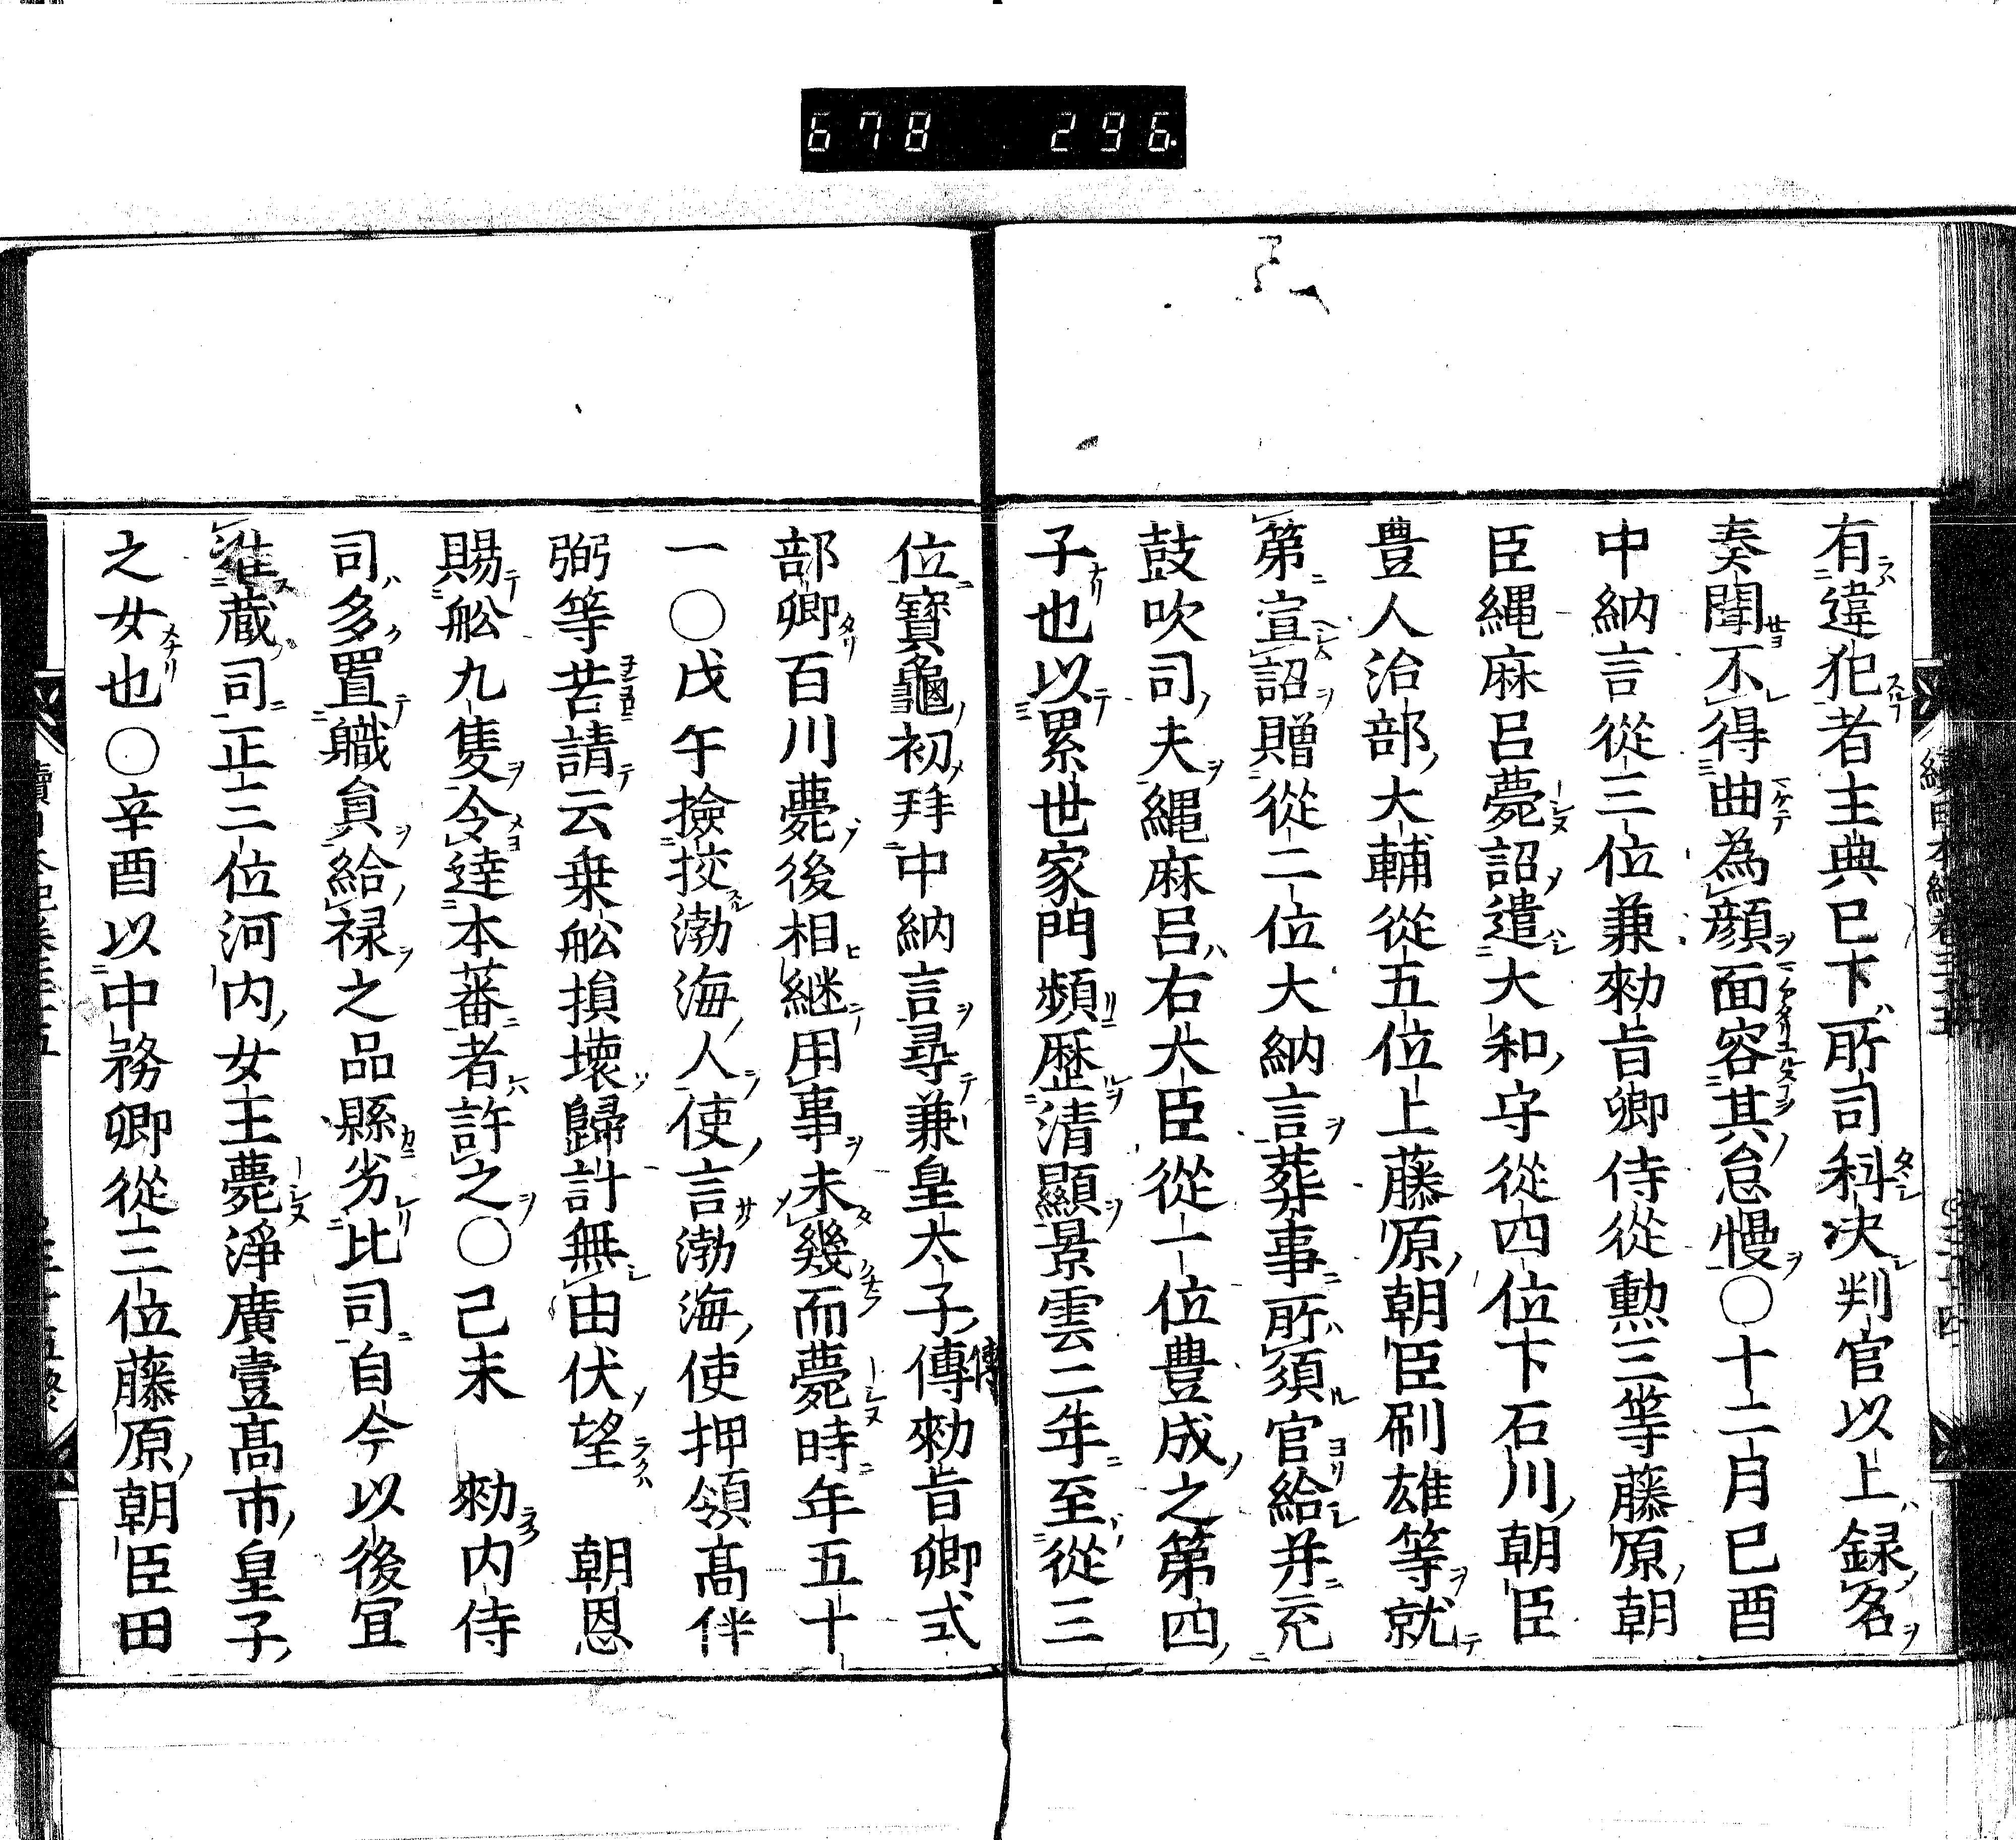 678 296
有違犯者主典已下所司科決判官以上録名
奏聞不得曲為顔面容其怠慢○十二月已酉
中納言従三位兼勅旨卿侍従勲三等藤原朝
臣縄麻呂薨詔遣大和守従四位下石川朝臣
豊人治部大輔従五位上藤原朝臣刷雄等就
第宣詔贈従二位大納言葬事所須官給并充
鼓吹司夫縄麻呂右大臣従一位豊成之第四
子也以累世家門頻歴清顯景雲二年至従三
位寳龜初拜中納言尋兼皇太子傳勅旨卿式
部卿百川薨後相継用事未幾而薨時年五十
一○戊午撿挍渤海人使言渤海使押領髙伴
弼等苦請云乗舩損壊歸計無由伏望 朝恩
賜舩九隻令達本蕃者許之○己未 勅内侍
司多置職員給禄之品懸劣比司自今以後宜
准蔵司正三位河内女王薨淨廣壹髙市皇子
之女也○辛酉以中務卿従三位藤原朝臣田